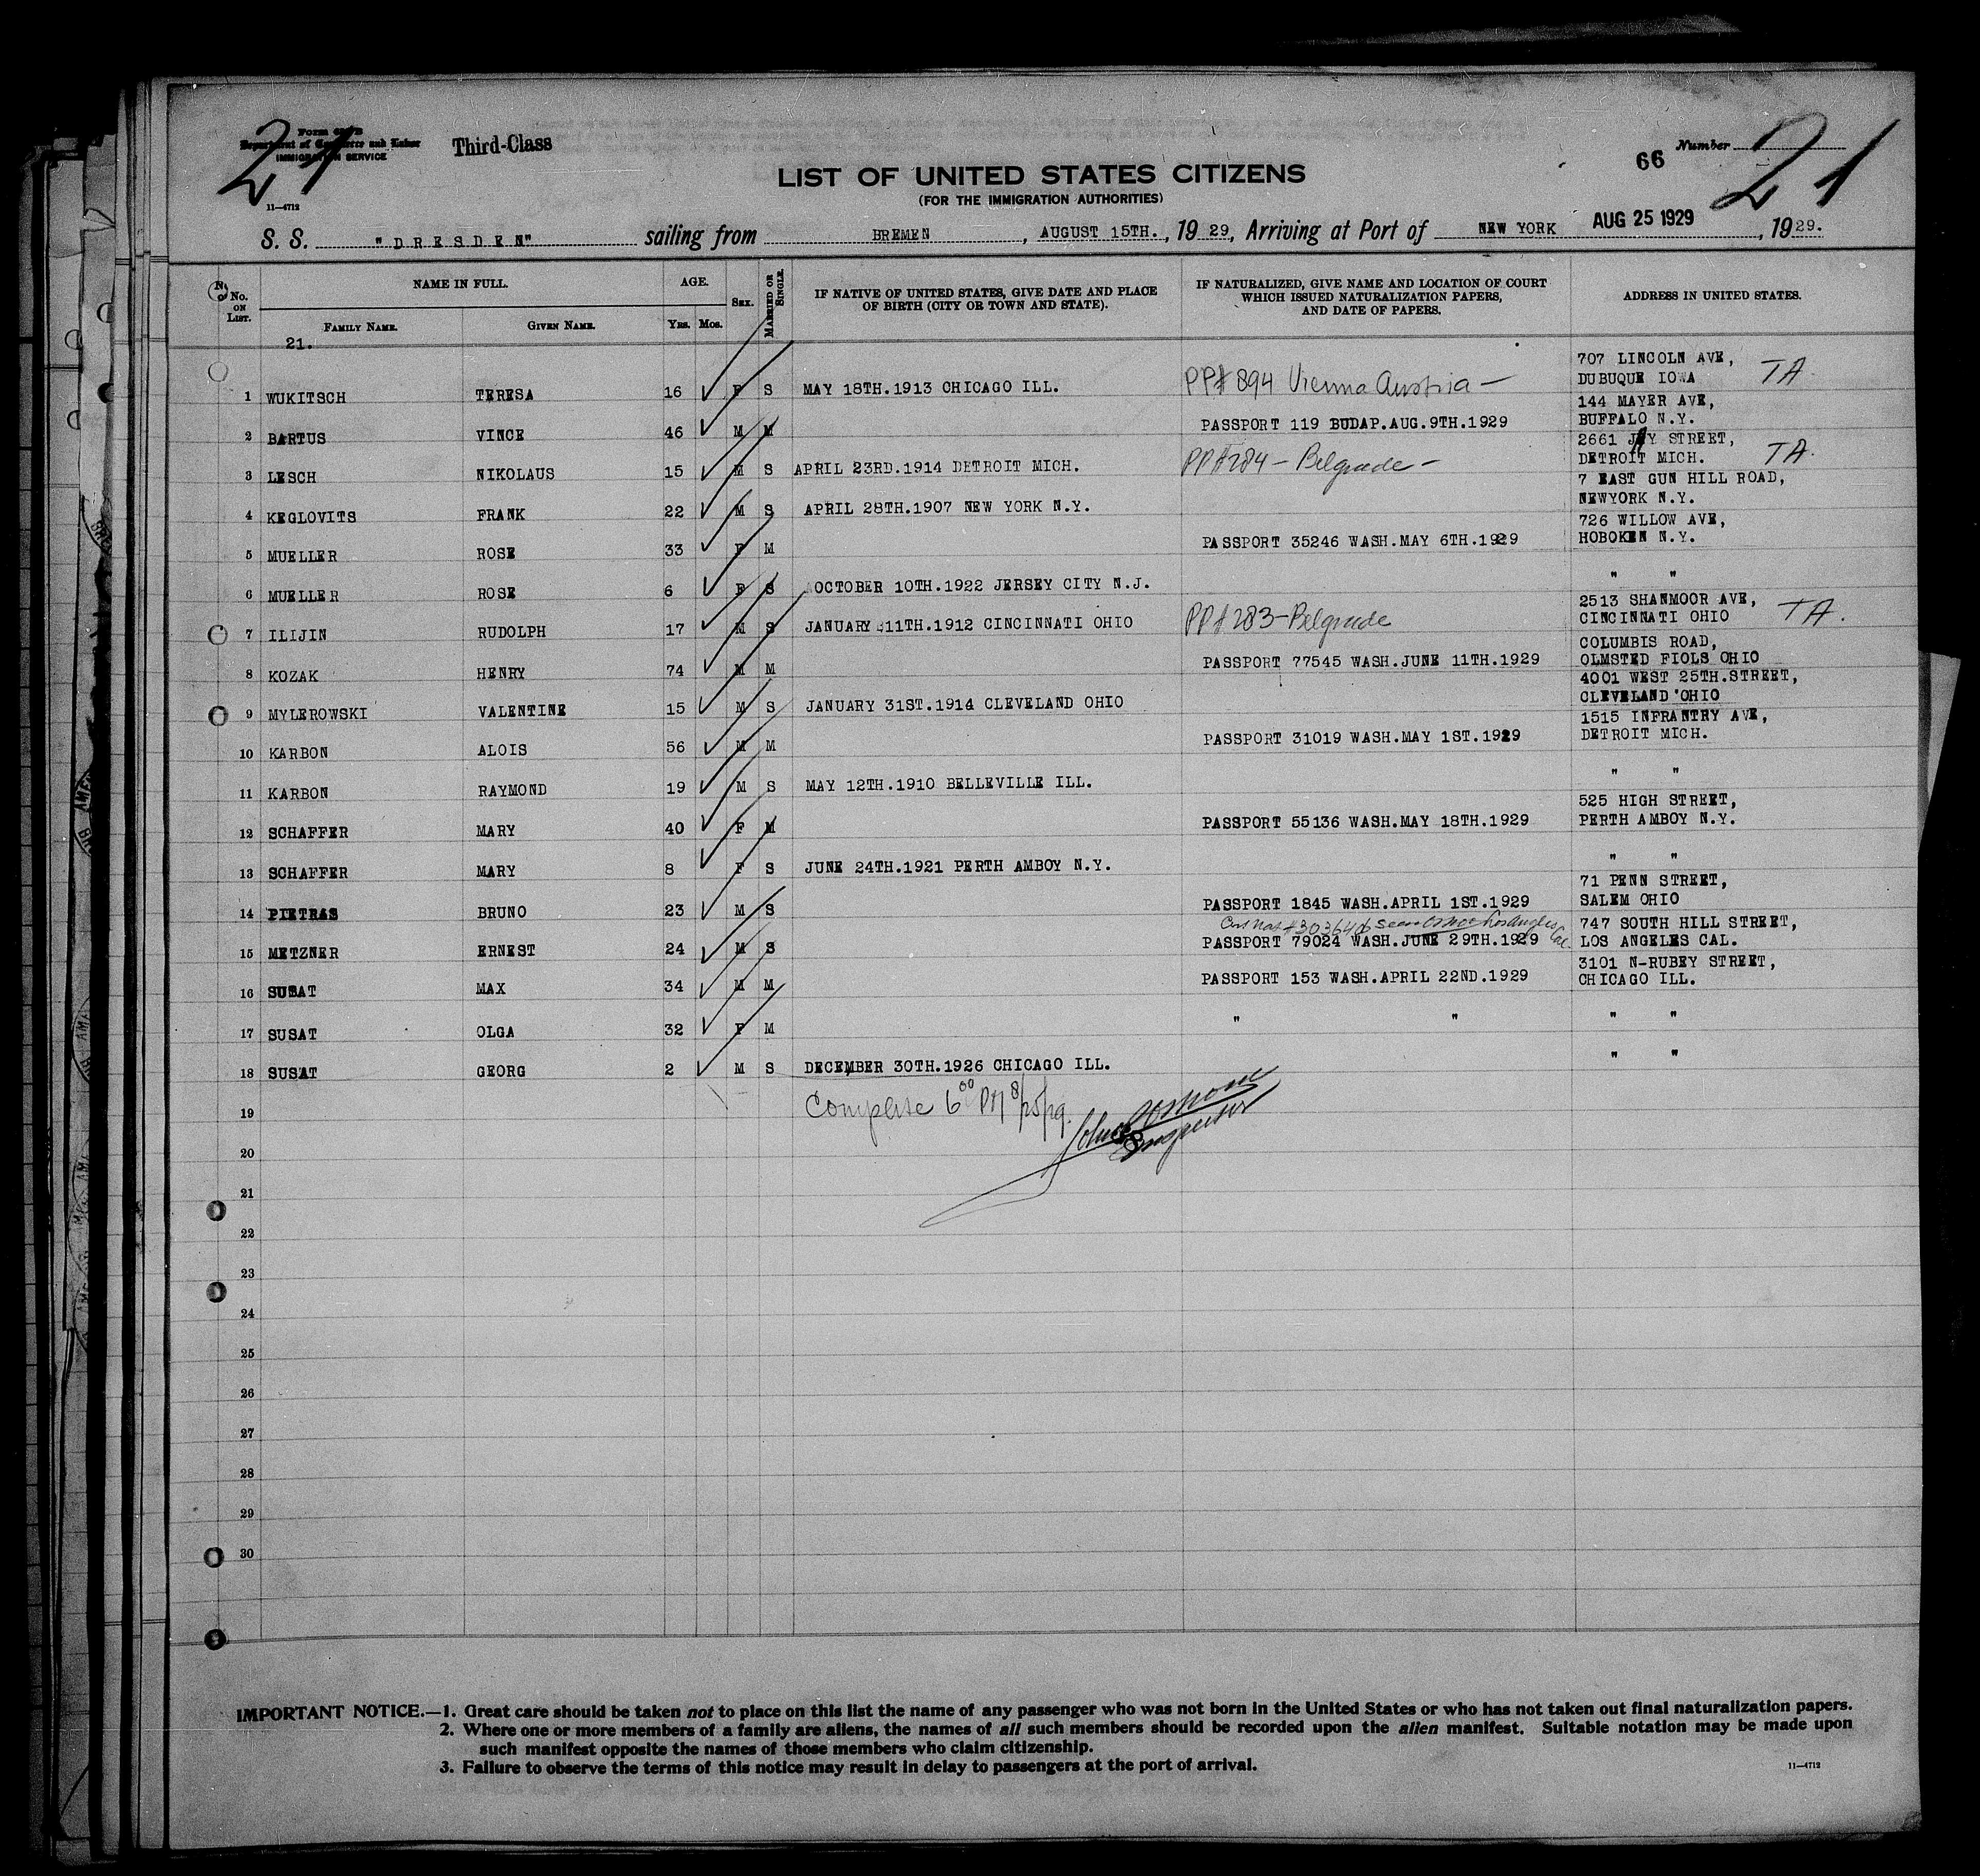 21
Form 630 B
Department of Commerce and Labor
IMMIGRATION SERVICE
11—4712
Third-Class
66 Number 21
LIST OF UNITED STATES CITIZENS
(FOR THE IMMIGRATION AUTHORITIES)
S. S. "DRESDEN" sailing from BREMEN, AUGUST 15TH., 1929, Arriving at Port of NEW YORK AUG 25 1929, 1929.
No. on List. NAME IN FULL. AGE. Sex. Married or Single. IF NATIVE OF UNITED STATES, GIVE DATE AND PLACE OF BIRTH (CITY OR TOWN AND STATE). IF NATURALIZED, GIVE NAME AND LOCATION OF COURT WHICH ISSUED NATURALIZATION PAPERS, AND DATE OF PAPERS. ADDRESS IN UNITED STATES.
Family Name. Given Name. Yrs. Mos.
21.
1 WUKITSCH TERESA 16 F S MAY 18TH.1913 CHICAGO ILL. PP# 894 Vienna Austria — 707 LINCOLN AVE, DUBUQUE IOWA TA
2 BARTUS VINCE 46 M M PASSPORT 119 BUDAP.AUG.9TH.1929 144 MAYER AVE, BUFFALO N.Y.
3 LESCH NIKOLAUS 15 M S APRIL 23RD.1914 DETROIT MICH. PP# 284 — Belgrade — 2661 JAY STREET, DETROIT MICH. TA
4 KEGLOVITS FRANK 22 M S APRIL 28TH.1907 NEW YORK N.Y. 7 EAST GUN HILL ROAD, NEWYORK N.Y.
5 MUELLER ROSE 33 F M PASSPORT 35246 WASH.MAY 6TH.1929 726 WILLOW AVE, HOBOKEN N.Y.
6 MUELLER ROSE 6 F S OCTOBER 10TH.1922 JERSEY CITY N.J. " "
7 ILIJIN RUDOLPH 17 M S JANUARY 11TH.1912 CINCINNATI OHIO PP# 283—Belgrade 2513 SHANMOOR AVE, CINCINNATI OHIO TA.
8 KOZAK HENRY 74 M M PASSPORT 77545 WASH.JUNE 11TH.1929 COLUMBIS ROAD, OLMSTED FIOLS OHIO
9 MYLEROWSKI VALENTINE 15 M S JANUARY 31ST.1914 CLEVELAND OHIO 4001 WEST 25TH.STREET, CLEVELAND OHIO
10 KARBON ALOIS 56 M M PASSPORT 31019 WASH.MAY 1ST.1929 1515 INFRANTRY AVE, DETROIT MICH.
11 KARBON RAYMOND 19 M S MAY 12TH.1910 BELLEVILLE ILL. " "
12 SCHAFFER MARY 40 F M PASSPORT 55136 WASH.MAY 18TH.1929 525 HIGH STREET, PERTH AMBOY N.Y.
13 SCHAFFER MARY 8 F S JUNE 24TH.1921 PERTH AMBOY N.Y. " "
14 PIETRAS BRUNO 23 M S PASSPORT 1845 WASH.APRIL 1ST.1929 71 PENN STREET, SALEM OHIO
15 METZNER ERNEST 24 M S Cert Nat #3036406 seen Los Angeles Cal. PASSPORT 79024 WASH.JUNE 29TH.1929 747 SOUTH HILL STREET, LOS ANGELES CAL.
16 SUSAT MAX 34 M M PASSPORT 153 WASH.APRIL 22ND.1929 3101 N-RUBEY STREET, CHICAGO ILL.
17 SUSAT OLGA 32 F M " " " "
18 SUSAT GEORG 2 M S DECEMBER 30TH.1926 CHICAGO ILL. " "
19 Complete 6 00 PM 8/25/29.
Inspector
20
21
22
23
24
25
26
27
28
29
30
IMPORTANT NOTICE.—1. Great care should be taken not to place on this list the name of any passenger who was not born in the United States or who has not taken out final naturalization papers.
2. Where one or more members of a family are aliens, the names of all such members should be recorded upon the alien manifest. Suitable notation may be made upon
such manifest opposite the names of those members who claim citizenship.
3. Failure to observe the terms of this notice may result in delay to passengers at the port of arrival.
11—4712